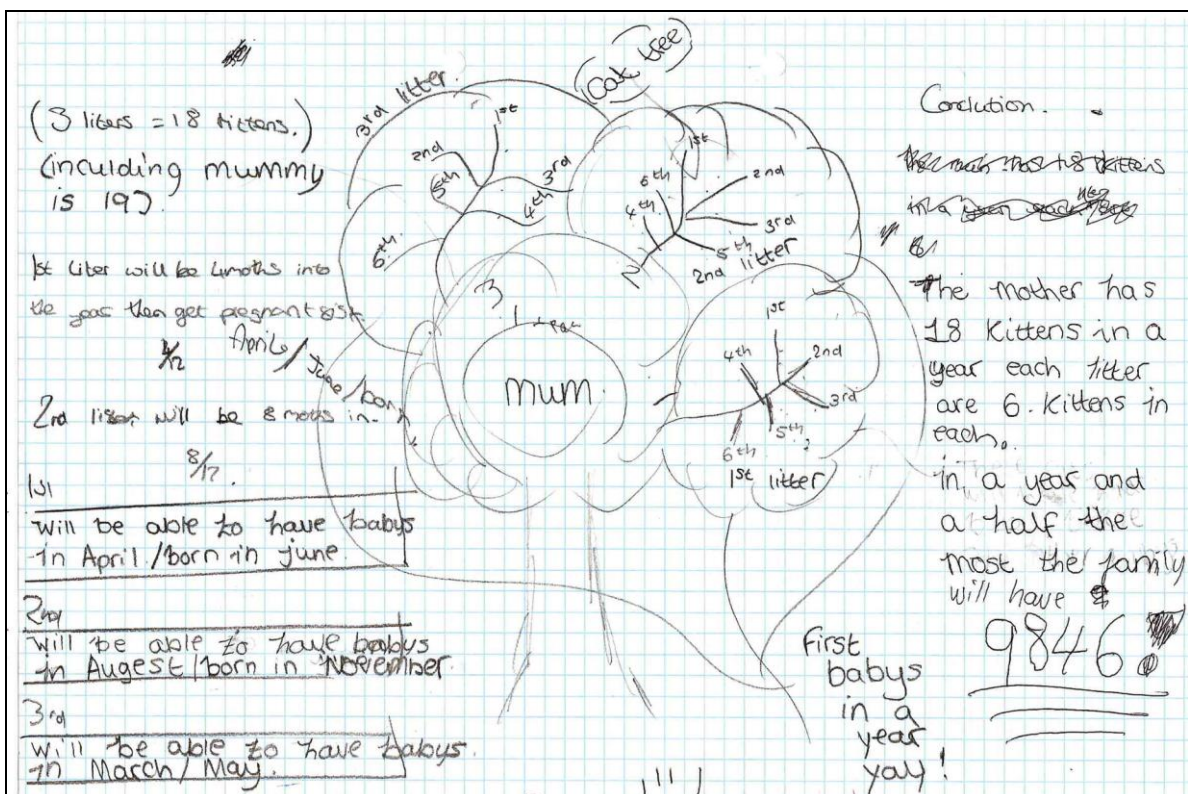 Cat tree
(3 liters = 18 kittens.)
(inculding mummy
is 19)
1st liter will be 4moths into
the year then get pregnant
4/12
April/June/born
2nd liter will be 8 moths in.
8/12.
1st
will be able to have babys
in April./born in june.
2nd
will be able to have babys
in Augest/born in November.
3rd
will be able to have babys.
in March/May.
3rd litter.
1st
2nd
3rd
5th
4th
6th
3
1st
6th
2nd
4th
3rd
5th
2
2nd litter
mum
1
1st
4th
2nd
3rd
5th
6th
1st litter
Conclution.
The mother has
18 kittens in a
year each litter
are 6. kittens in
each.
in a year and
a half the
most the family
will have
9846!
first
babys
in a
year
yay!